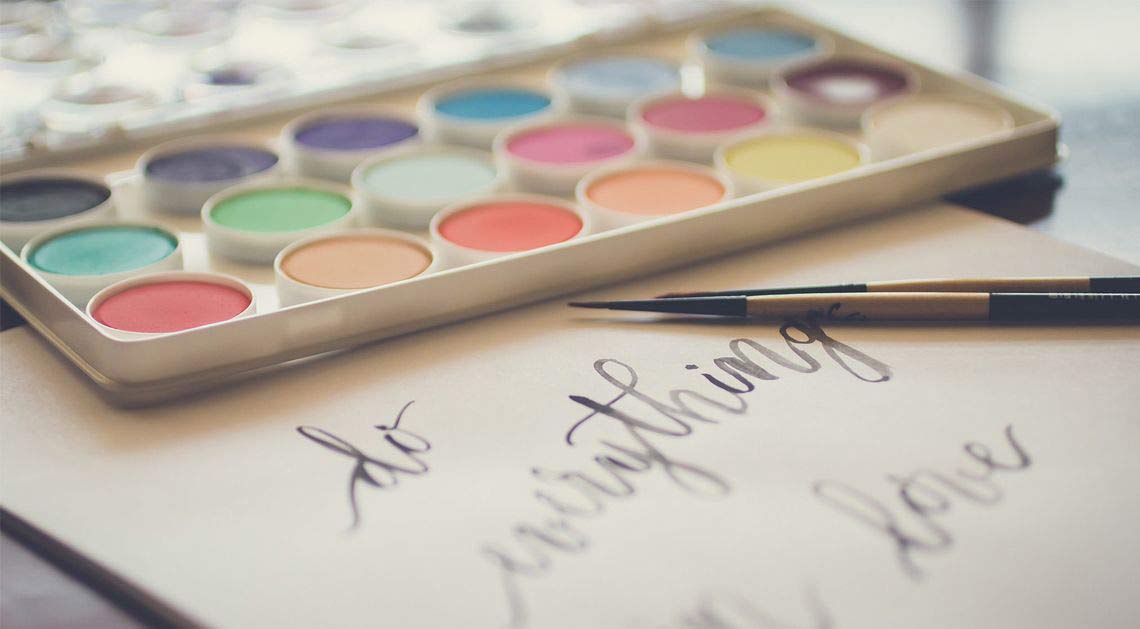 do
everything
love